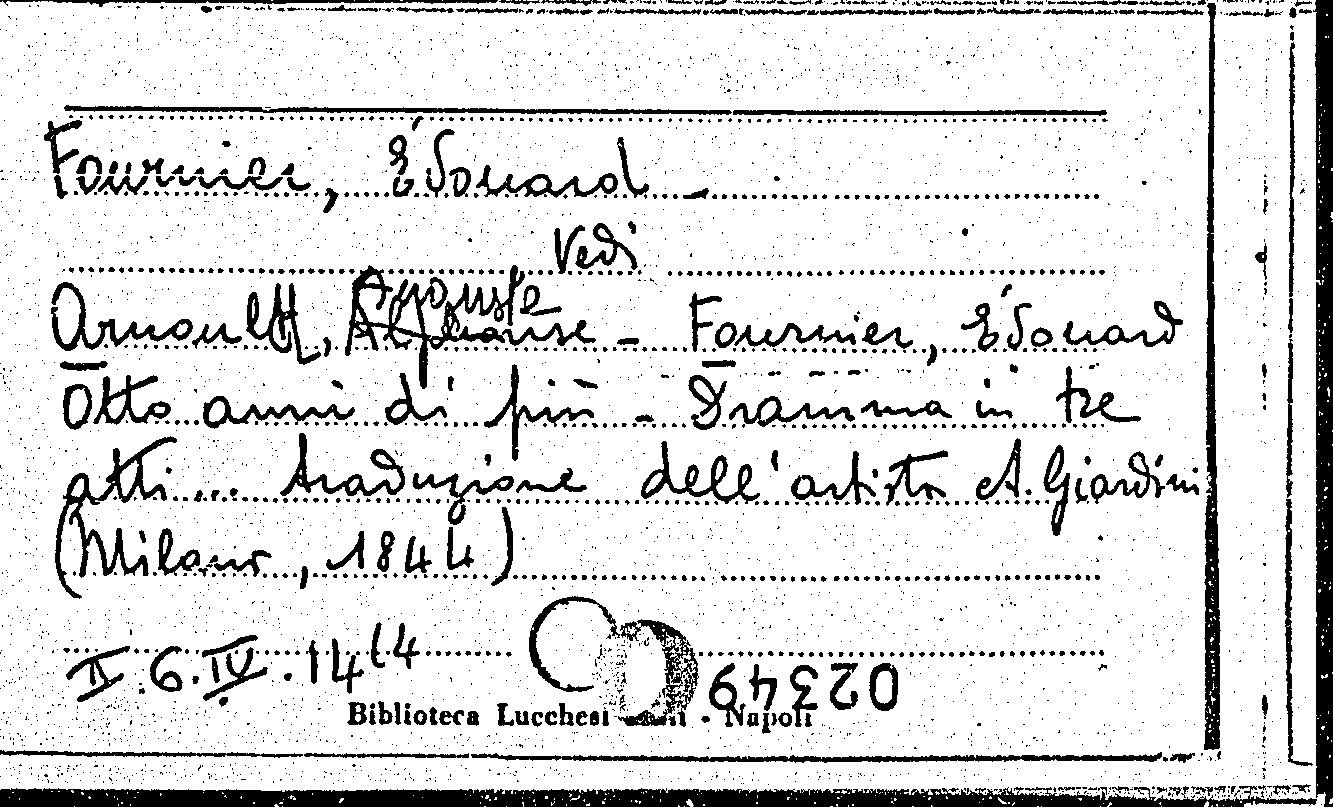 Fournier, Édouard -
Vedi
Auguste
Arnoult, Alphonse - Fournier, Édouard
Otto anni di più - Dramma in tre
atti ... traduzione dell'artista A. Giardini
(Milano, 1844)
II.6.IV.14 14
02349
Biblioteca Lucchesi - Napoli